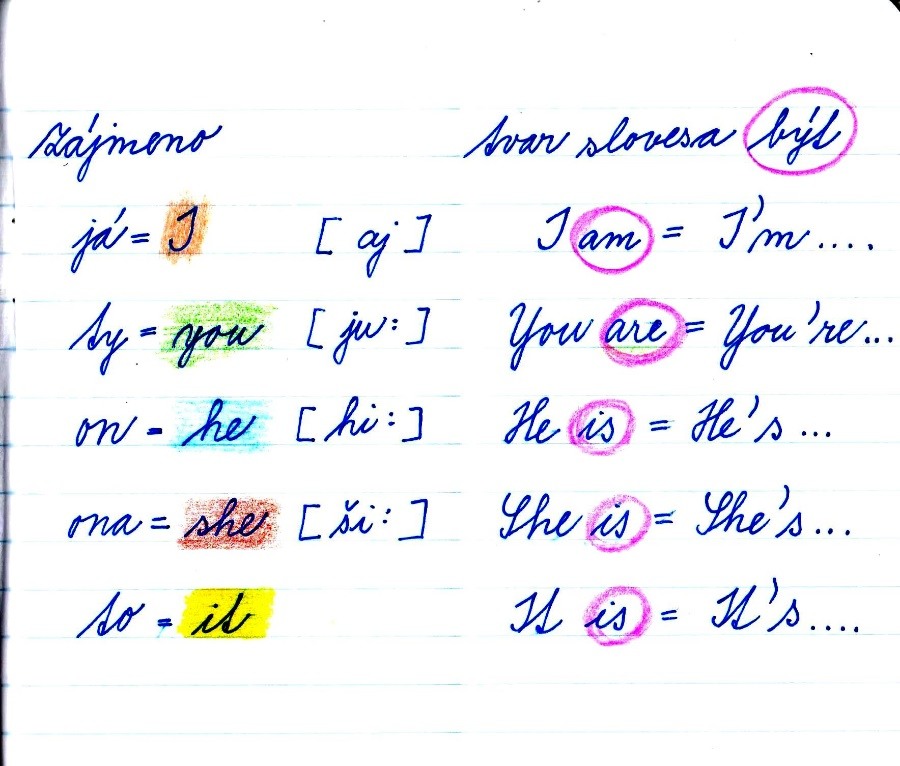 zájmeno tvar slovesa být
já = I [aj] I am = I'm....
ty = you [ju:] You are = You're...
on = he [hi:] He is = He's...
ona = she [ši:] She is = She's...
to = it It is = It's....